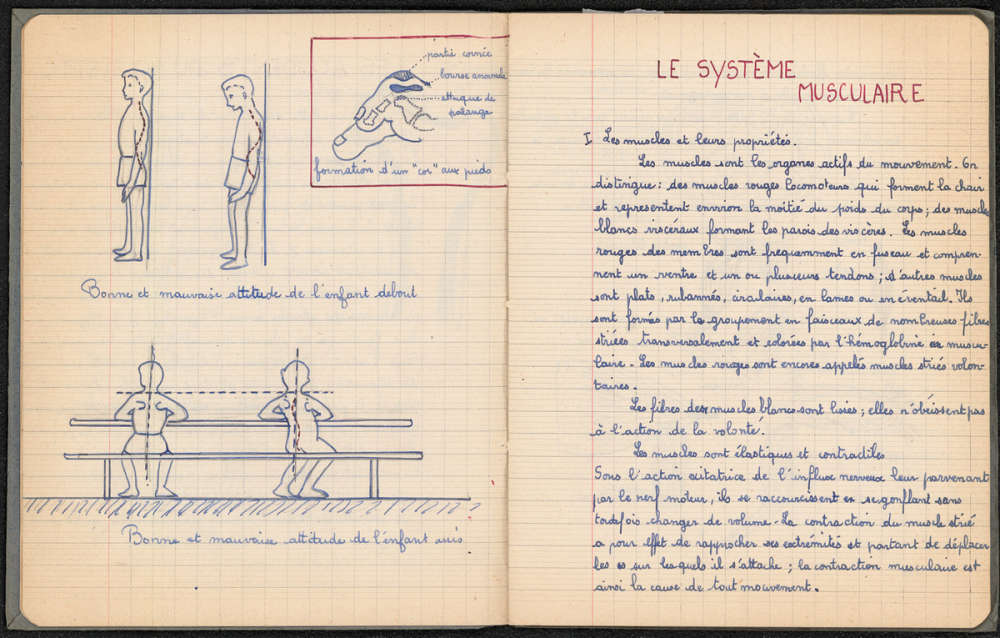 partie cornée
bourse anormale
attaque de
palange
formation d'un "cor" aux pieds
Bonne et mauvaise attitude de l'enfant debout
Bonne et mauvaise attitude de l'enfant assis
LE SYSTÈME
MUSCULAIRE
I Les muscles et leurs propriétés.
Les muscles sont les organes actifs du mouvement. On
distingue : des muscles rouges locomoteurs qui forment la chair
et representent environ la moitié du poids du corps ; des muscles
blancs viscéraux formant les parois des viscères. Les muscles
rouges des membres sont frequemment en fuseau et compren-
nent un ventre et un ou plusieurs tendons ; d'autres muscles
sont plats, rubannés, circulaires, en lames ou en éventail. Ils
sont formés par le groupement en faisceaux de nombreuses fibres
striées transversalement et colorées par l'hémoglobine muscu-
laire. Les muscles rouges sont encores appelés muscles striés volon-
taires.
Les fibres des muscles blancs sont lisses ; elles n'obéissent pas
à l'action de la volonté.
Les muscles sont élastiques et contractiles
Sous l'action exitatrice de l'influx nerveux leur parvenant
par le nerf moteur, ils se raccourcissent en se gonflant sans
toutefois changer de volume. La contraction du muscle strié
a pour effet de rapprocher ses extrémités et partant de déplacer
les os sur lesquels il s'attache ; la contraction musculaire est
ainsi la cause de tout mouvement.